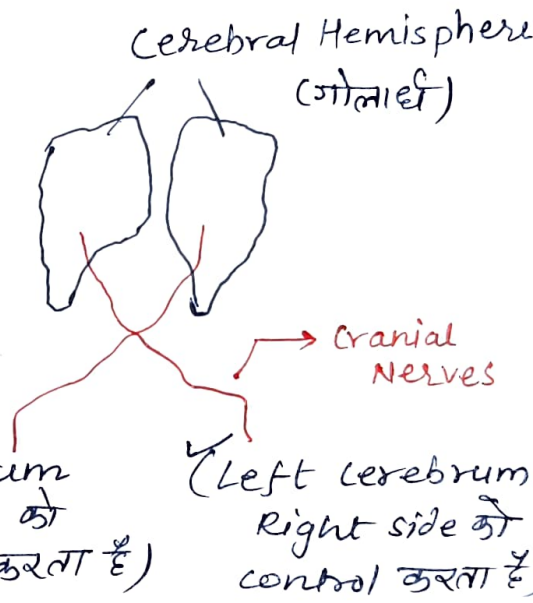 Cerebral Hemisphere
(गोलार्ध)
Cranial
Nerves
um
को
करता है)
(Left cerebrum
Right side को
control करता है